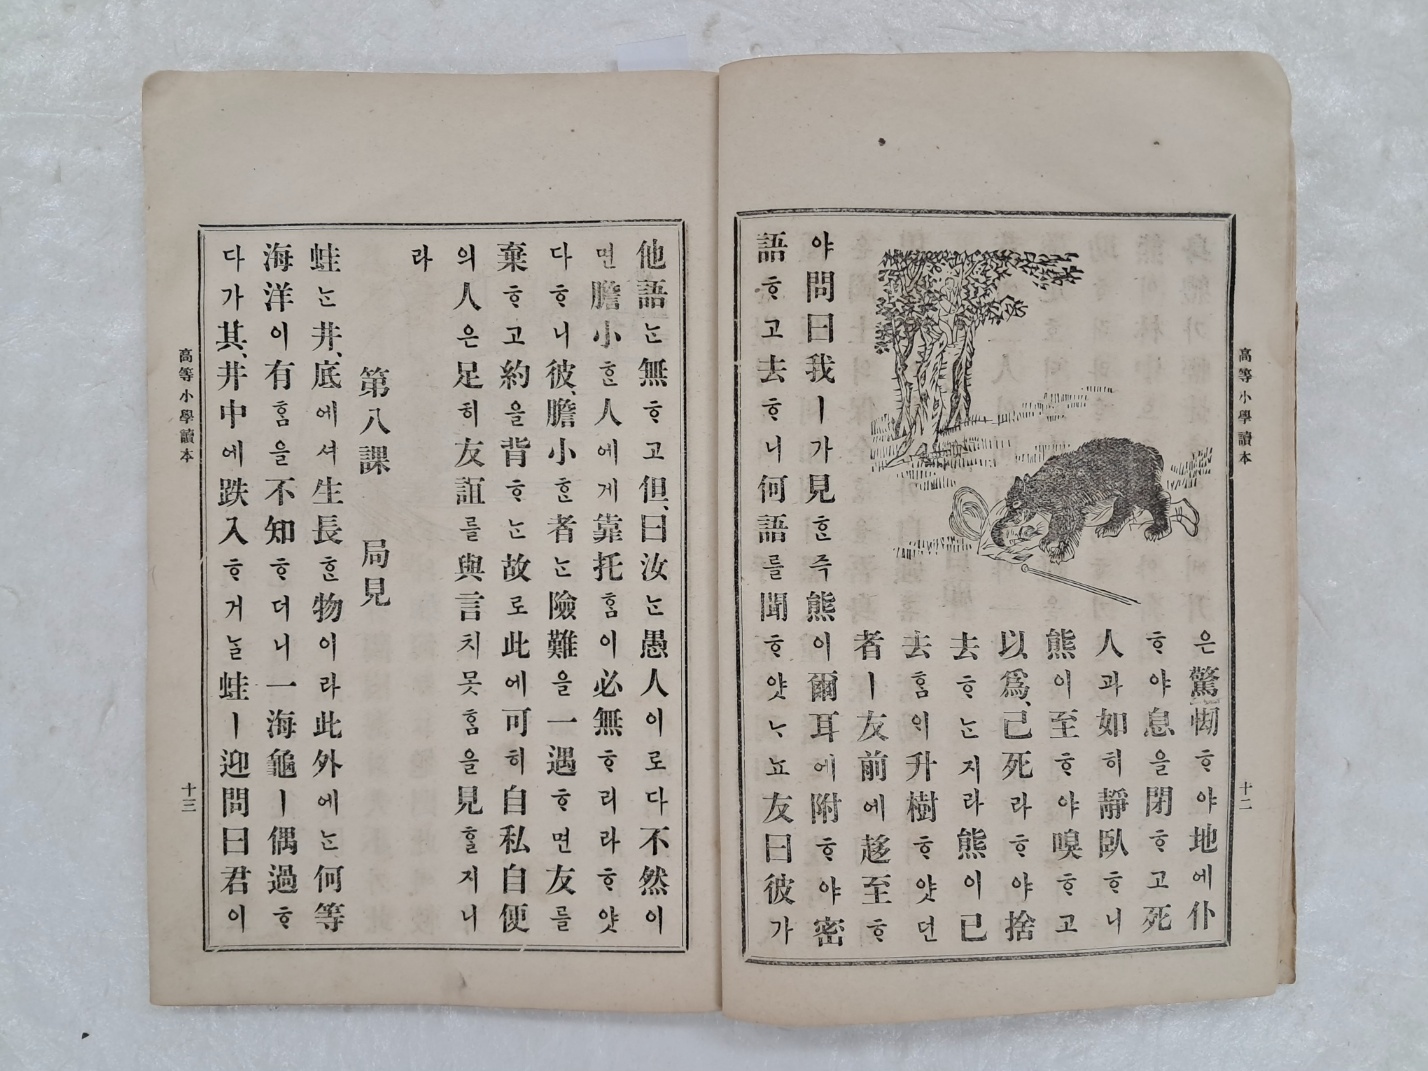 高等小學讀本
十二
은驚㘅ᄒᆞ야地에仆
ᄒᆞ야息을閉ᄒᆞ고死
人과如히靜臥ᄒᆞ니
熊이至ᄒᆞ야嗅ᄒᆞ고
以爲、己死라ᄒᆞ야捨
去ᄒᆞᄂᆞᆫ지라熊이已
去ᄒᆞᆷᄋᆡ升樹ᄒᆞ얏던
者ㅣ友前에趍至ᄒᆞ
야問曰我ㅣ가見ᄒᆞᆫ즉熊이爾耳에附ᄒᆞ야密
語ᄒᆞ고去ᄒᆞ니何語를聞ᄒᆞ얏ᄂᆞ뇨友曰彼가
他語ᄂᆞᆫ無ᄒᆞ고但、曰汝ᄂᆞᆫ愚人이로다不然이
면膽小ᄒᆞᆫ人에게靠托ᄒᆞᆷ이必無ᄒᆞ리라ᄒᆞ얏
다ᄒᆞ니彼、膽小ᄒᆞᆫ者ᄂᆞᆫ險難을一遇ᄒᆞ면友를
棄ᄒᆞ고約을背ᄒᆞᄂᆞᆫ故로此에可히自私自便
의人은足히友誼를與言치못ᄒᆞᆷ을見ᄒᆞᆯ지니
라
第八課 局見
蛙ᄂᆞᆫ井、底에셔生長ᄒᆞᆫ物이라此外에ᄂᆞᆫ何等
海洋이有ᄒᆞᆷ을不知ᄒᆞ더니一海龜ㅣ偶過ᄒᆞ
다가其、井中에跌入ᄒᆞ거ᄂᆞᆯ蛙ㅣ迎問曰君이
高等小學讀本
十三